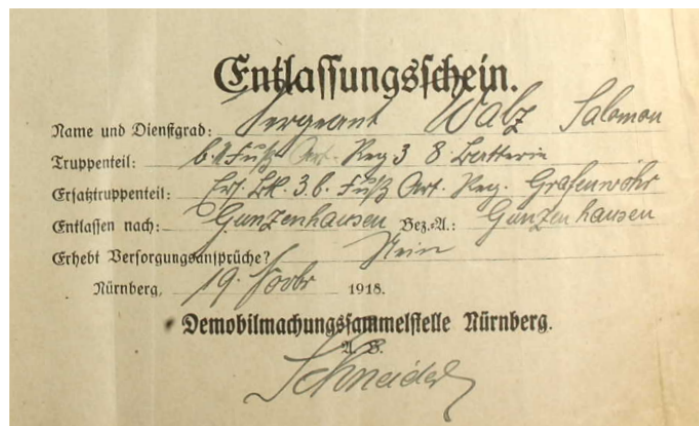 Entlassungsschein.
Name und Dienstgrad: Sergeant Walz Salomon
Truppenteil: Fuß Art. Reg 3 8. Batterie
Ersatztruppenteil: Ers. Btl. 3. b. Fuß Art. Reg. Grafenwöhr
Entlassen nach: Gunzenhausen Bez.-A.: Gunzenhausen
Erhebt Versorgungsansprüche? Nein
Nürnberg, 19. Novbr 1918.
Demobilmachungssammelstelle Nürnberg.
Schneider